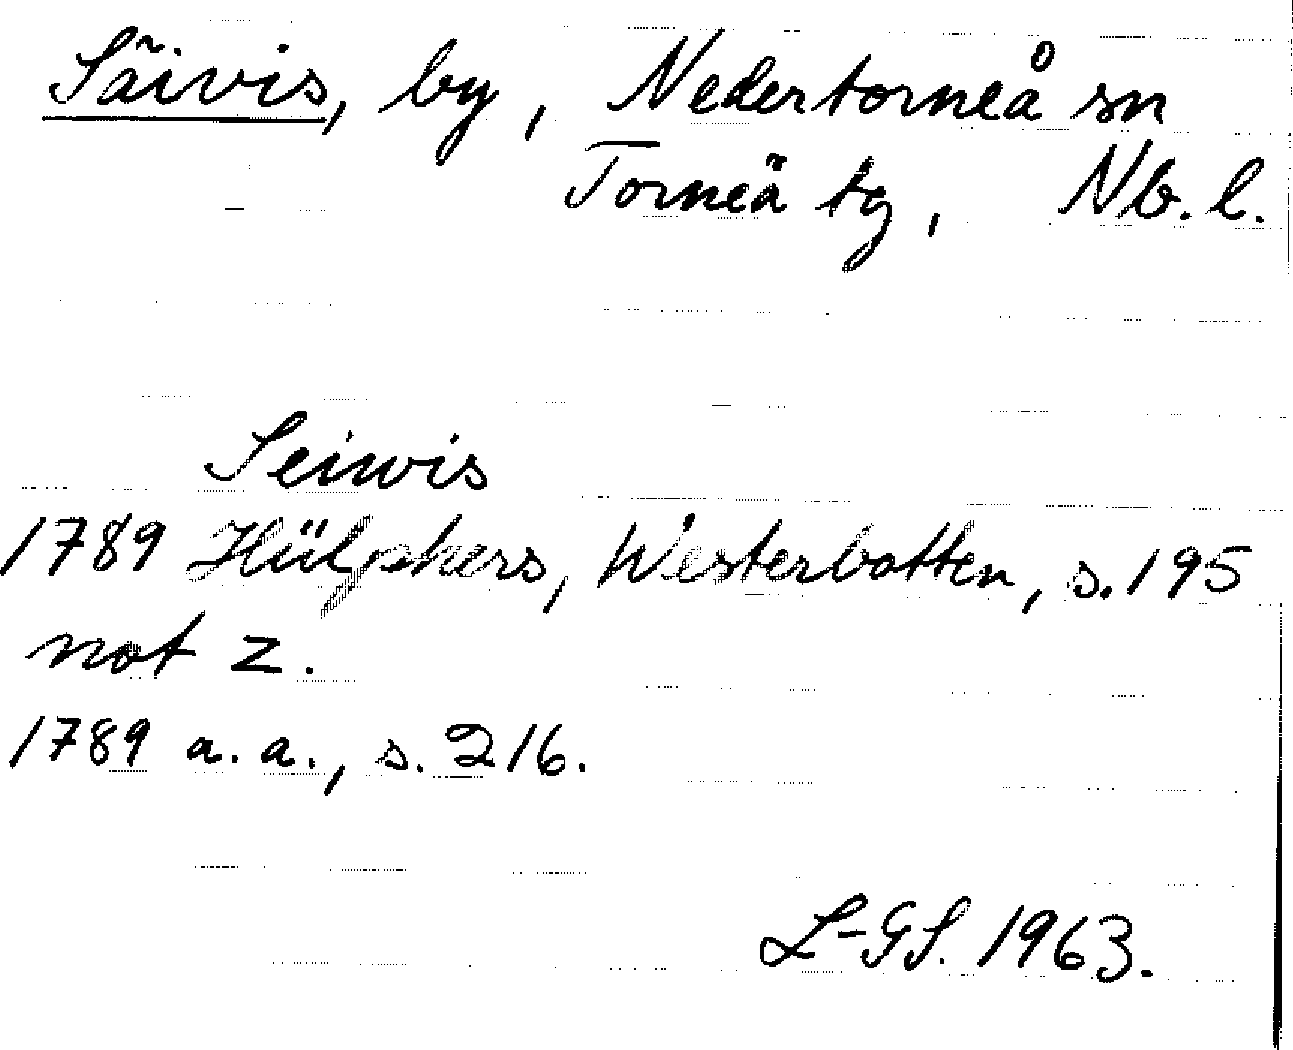 Säivis, by, Nedertorneå sn
Torneå tg, Nb. l.
Seiwis
1789 Hülphers, Westerbotten, s. 195
not z.
1789 a. a., s. 216.
L-GS. 1963.